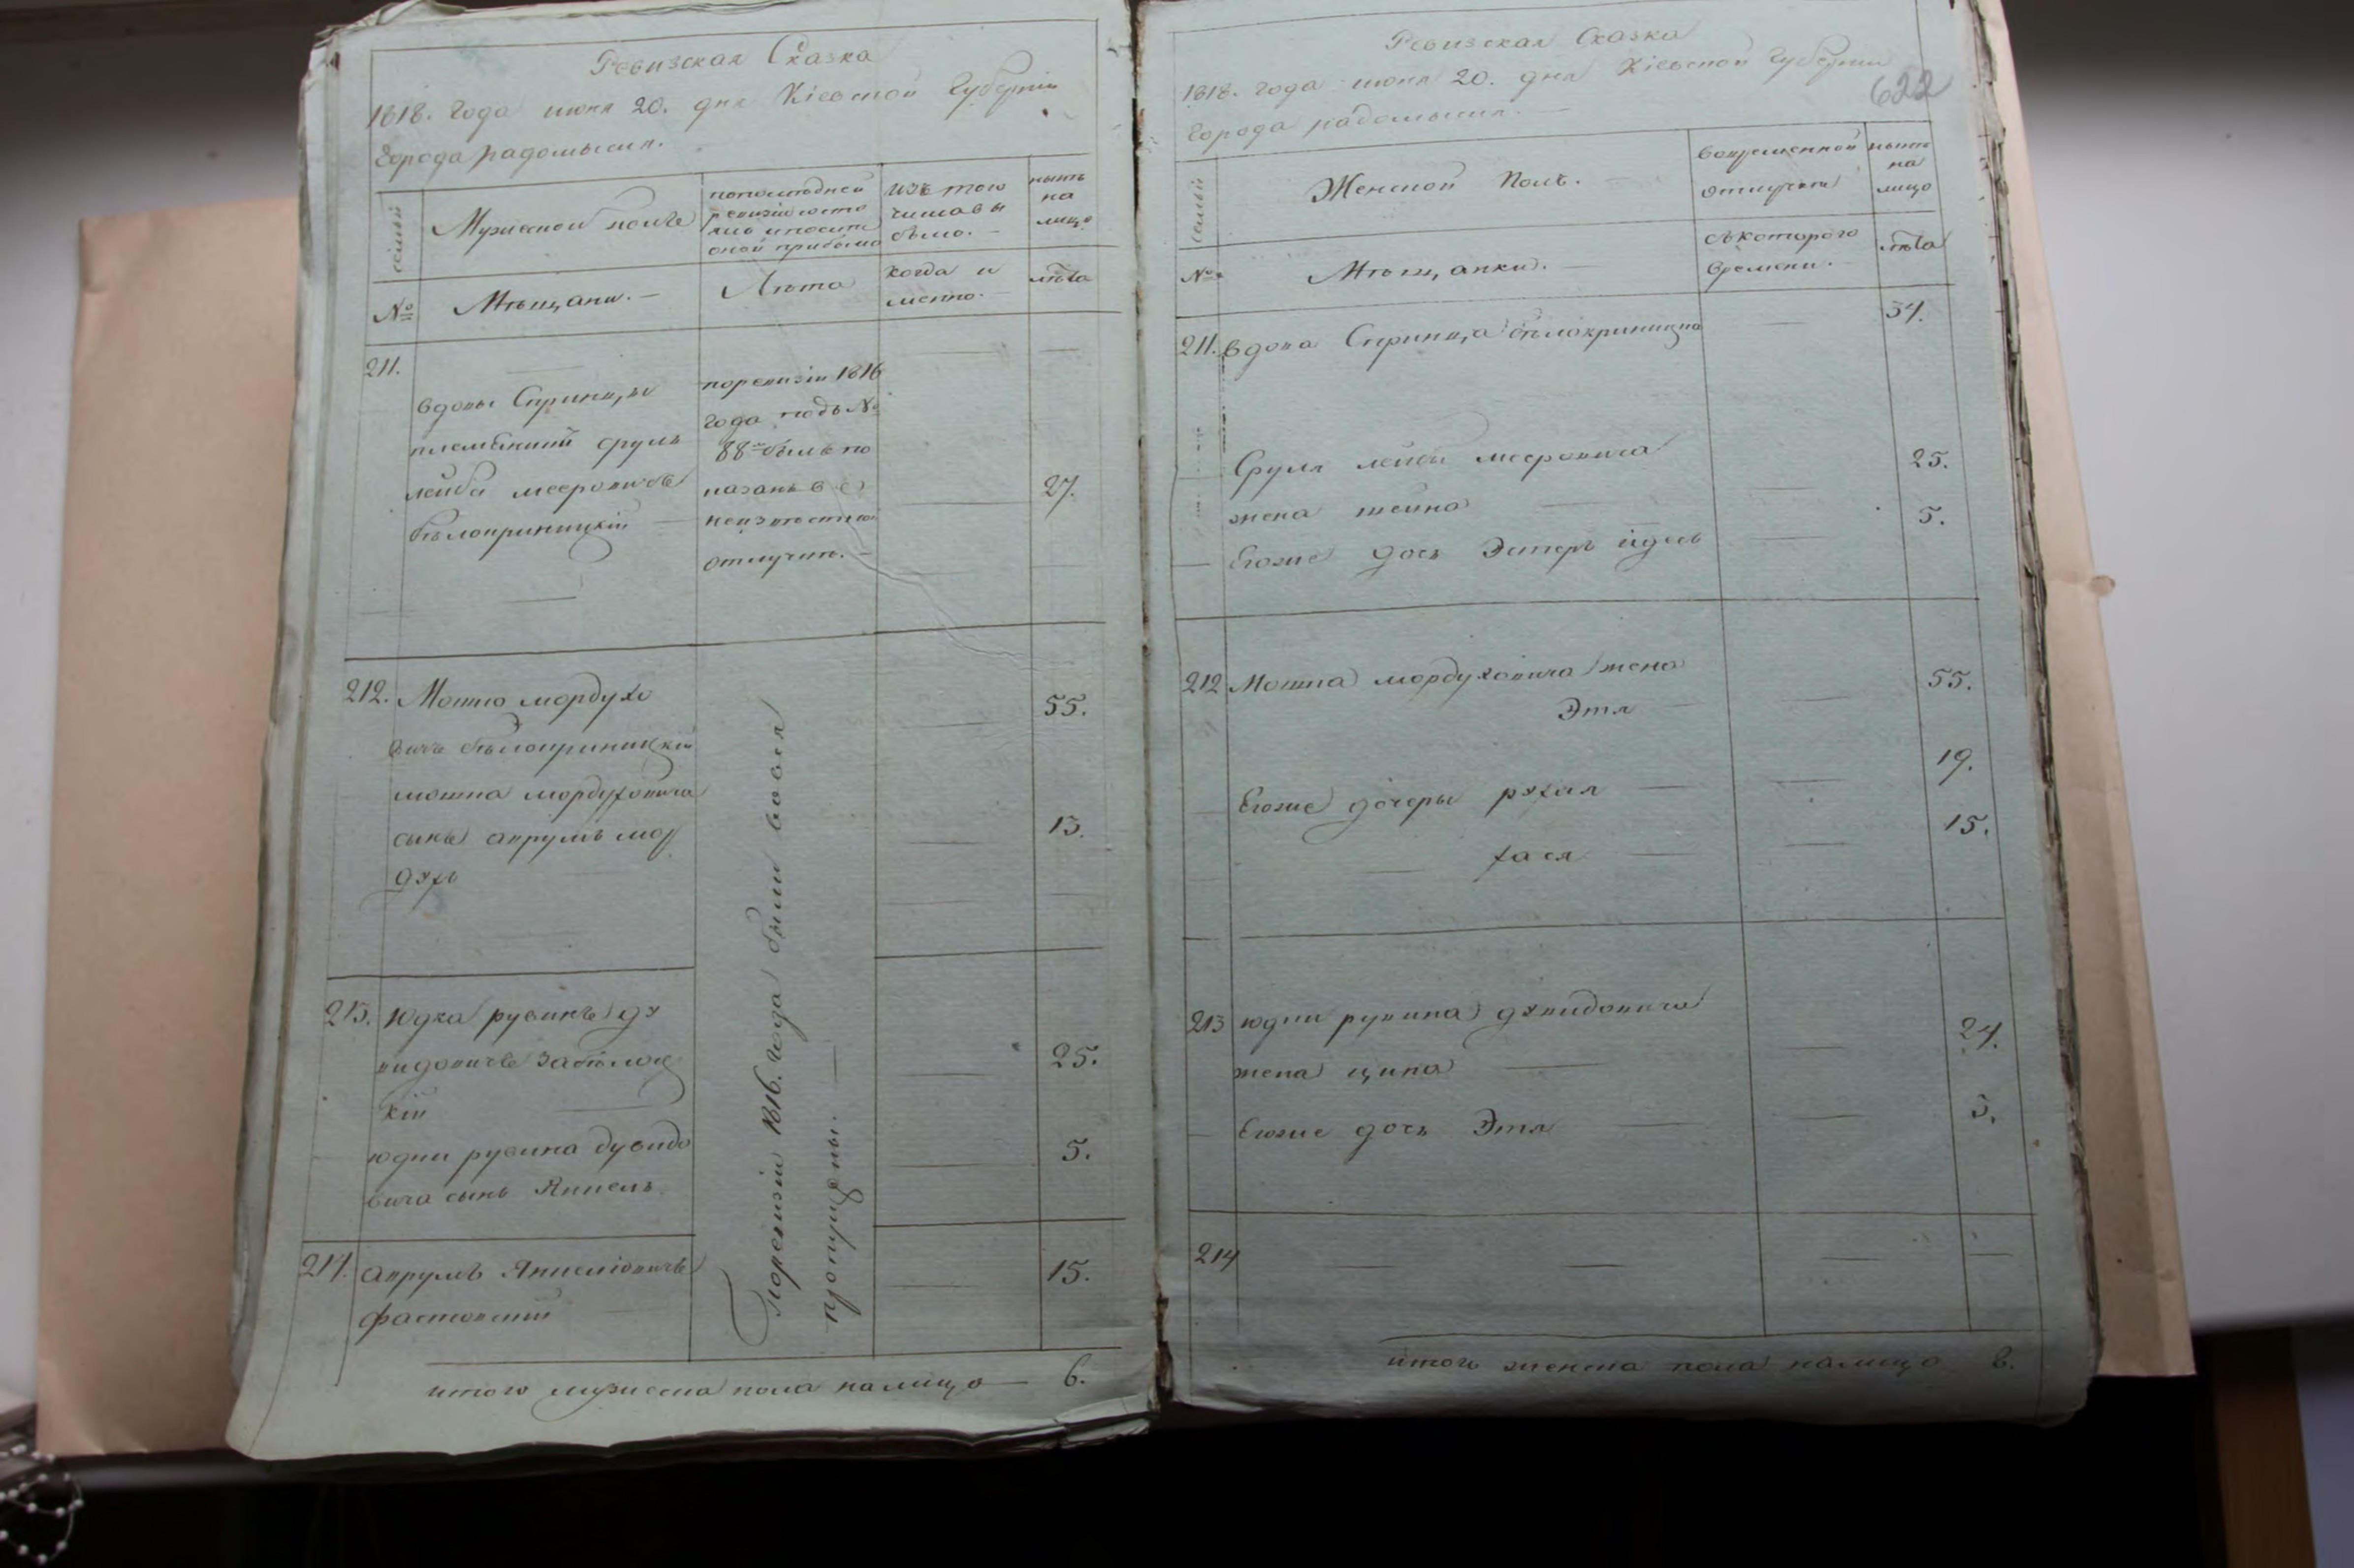 Ревизская Сказка
1818. года июня 20. дня Кіевской Губерніи
Города радомысля.
семьи
Мужескои полъ
по последней
ревизіи состо
яло и после
оной прибыло
изъ того
числа вы
было. —
нынѣ
на
лицо
№
Мѣщани. —
Лѣта
когда и
менно. —
лѣта
211.
вдовы Спринцы
племѣнникъ сруль
лейба мееровичъ
бѣлокриницкій
поревизіи 1816
года подъ №
88м былъ по
казанъ в
неизвѣстной
отлучкѣ. —
27.
212. Мошко мордухо
вичъ бѣлокриницкій
55.
мошка мордуховича
сынъ аврумъ мор
духъ
13.
213. Юдка рувинъ ду
видовичъ заблоц
кій
25.
юдки рувина дувидо
вича сынъ Янкель
5.
214. Аврумъ Янкелiовичъ
фастовскій
15.
Поревизіи 1816. года были вовся
пропущены. —
итого мужеска пола налицо — 6.
Ревизская Сказка
622
1818. года июня 20. дня Кіевской Губерніи
Города радомысля. —
семьи
Женской Полъ. —
вовременной
отлучки
нынѣ
на
лицо
№
Мѣщанки. —
съкоторого
времени. —
лѣта
211. вдова Спринца бѣлокриницка — 34.
Сруля лейби мееровича
жена шейна — 25.
Егоже дочь Эстеръ йдесь — 5.
212 Мошка мордуховича жена
Этля — 55.
Егоже дочеры рухля — 19.
хася — 15.
213 юдки рувина дувидовича
жена ципа — 24.
Егоже дочь Этля — 3.
214 — — —
итого женска пола налицо 8.